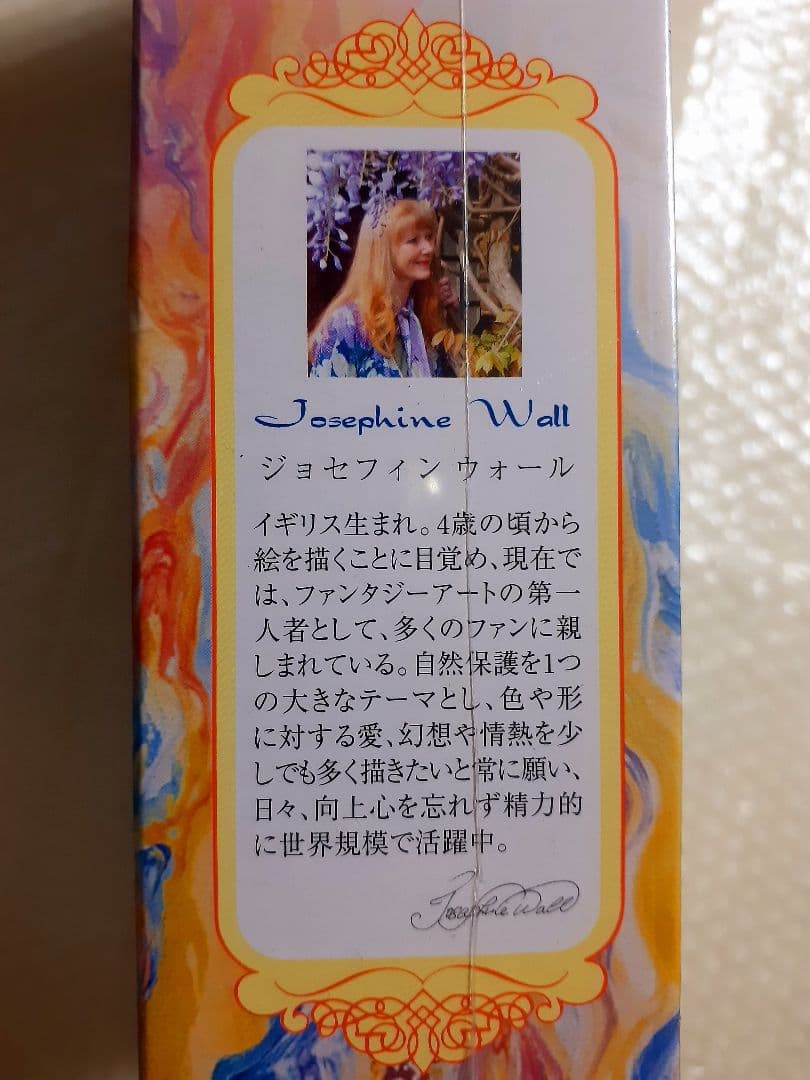 Josephine Wall
ジョセフィン ウォール
イギリス生まれ。4歳の頃から
絵を描くことに目覚め、現在で
は、ファンタジーアートの第一
人者として、多くのファンに親
しまれている。自然保護を1つ
の大きなテーマとし、色や形
に対する愛、幻想や情熱を少
しでも多く描きたいと常に願い、
日々、向上心を忘れず精力的
に世界規模で活躍中。
Josephine Wall